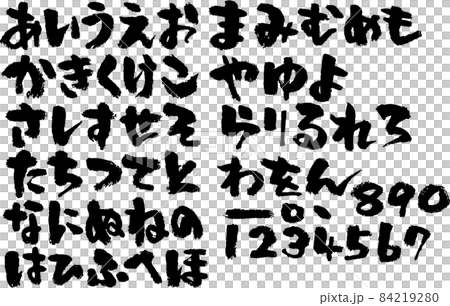 あいうえお
かきくけこ
さしすせそ
たちつてと
なにぬねの
はひふへほ
まみむめも
やゆよ
らりるれろ
わをん
ー。、890
1234567
PIXTA
pixta.jp - 84219280